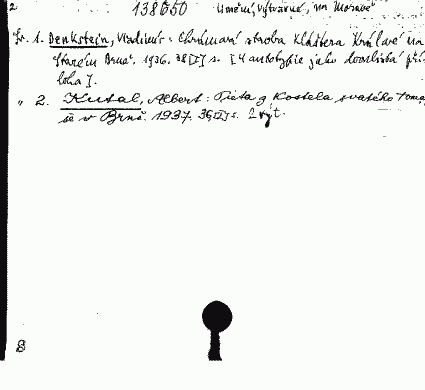 2 138650 Umění výtvarné, na Moravě
Sv. 1. Denkstein, Vladimír: Chrámová stavba Kláštera Králové na
Starém Brně. 1936. 38[I] s. [4 autotypie jako dvoulistá pří-
loha].
" 2. Kutal, Albert: Pieta z Kostela svatého Tomá-
še v Brně. 1937. 36[I] s. 2 výt.
8